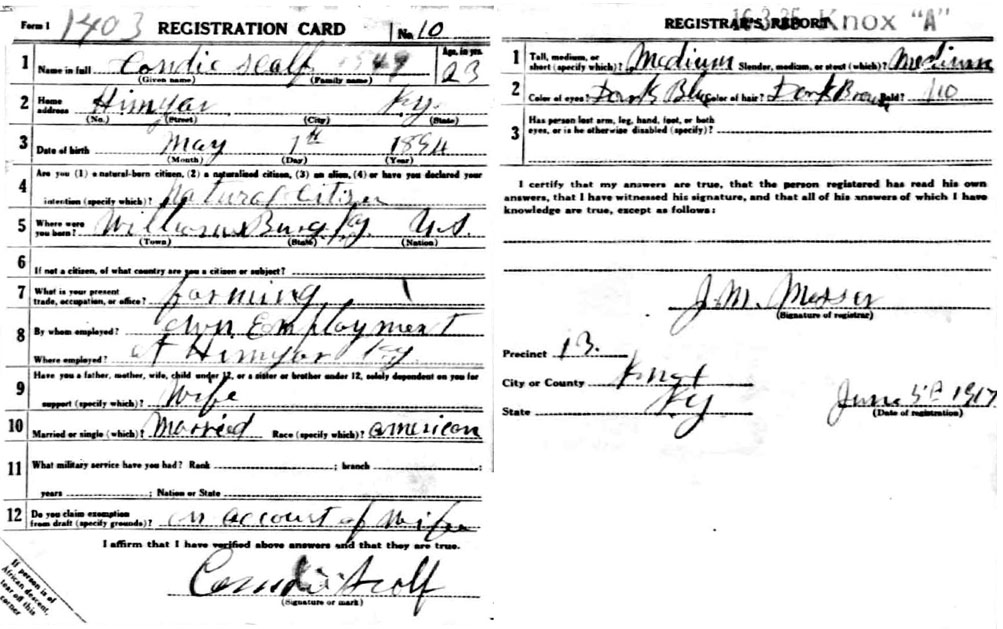 Form 1 1403 REGISTRATION CARD No. 10
1 Name in full Condie Scalf Age, in yrs. 23
(Given name) (Family name)
2 Home address Himyar Ky.
(No.) (Street) (City) (State)
3 Date of birth May 1th 1894
(Month) (Day) (Year)
4 Are you (1) a natural-born citizen, (2) a naturalized citizen, (3) an alien, (4) or have you declared your
intention (specify which)? Natural Citizen
5 Where were you born? Williamsburg Ky. U.S.
(Town) (State) (Nation)
6 If not a citizen, of what country are you a citizen or subject?
7 What is your present trade, occupation, or office? farming
8 By whom employed? own Employment
Where employed? at Himyar Ky.
9 Have you a father, mother, wife, child under 12, or a sister or brother under 12, solely dependent on you for
support (specify which)? Wife
10 Married or single (which)? Married Race (specify which)? american
11 What military service have you had? Rank ; branch ;
years ; Nation or State
12 Do you claim exemption from draft (specify grounds)? on account of Wife
I affirm that I have verified above answers and that they are true.
Condie Scalf
(Signature or mark)
If person is of
African descent,
tear off this
corner
REGISTRAR'S REPORT 16-3-25 Knox "A"
1 Tall, medium, or short (specify which)? Medium Slender, medium, or stout (which)? Medium
2 Color of eyes? Dark Blue Color of hair? Dark Brown Bald? No
3 Has person lost arm, leg, hand, foot, or both
eyes, or is he otherwise disabled (specify)?
I certify that my answers are true, that the person registered has read his own
answers, that I have witnessed his signature, and that all of his answers of which I have
knowledge are true, except as follows:
J. M. Messer
(Signature of registrar)
Precinct 13.
City or County Knox
State Ky
June 5th 1917
(Date of registration)